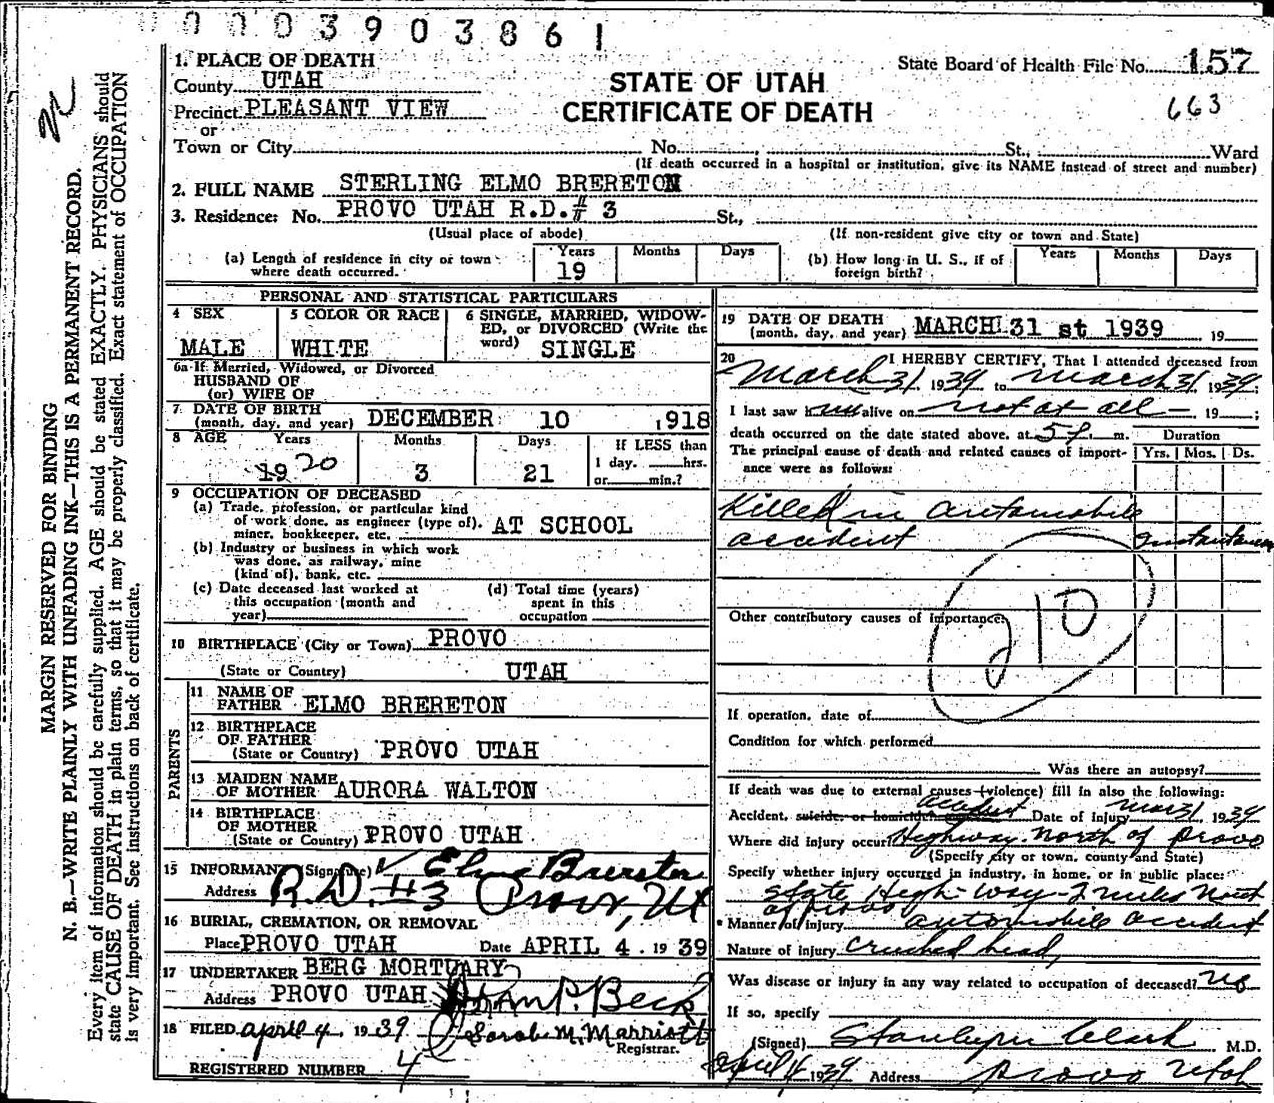 0003903861
MARGIN RESERVED FOR BINDING
N. B.—WRITE PLAINLY WITH UNFADING INK—THIS IS A PERMANENT RECORD.
Every item of information should be carefully supplied. AGE should be stated EXACTLY. PHYSICIANS should
state CAUSE OF DEATH in plain terms, so that it may be properly classified. Exact statement of OCCUPATION
is very important. See instructions on back of certificate.
1. PLACE OF DEATH
County UTAH
Precinct PLEASANT VIEW
or
Town or City No. St., Ward
STATE OF UTAH
CERTIFICATE OF DEATH
State Board of Health File No. 157
663
(If death occurred in a hospital or institution, give its NAME instead of street and number)
2. FULL NAME STERLING ELMO BRERETON
3. Residence: No. PROVO UTAH R.D.# 3 St.,
(Usual place of abode) (If non-resident give city or town and State)
(a) Length of residence in city or town where death occurred. Years 19 Months Days
(b) How long in U. S., if of foreign birth? Years Months Days
PERSONAL AND STATISTICAL PARTICULARS
4 SEX MALE
5 COLOR OR RACE WHITE
6 SINGLE, MARRIED, WIDOWED, or DIVORCED (Write the word) SINGLE
6a If Married, Widowed, or Divorced
HUSBAND OF
(or) WIFE OF
7 DATE OF BIRTH
(month, day, and year) DECEMBER 10 1918
8 AGE Years Months Days If LESS than
19 20 3 21 1 day, hrs.
or min.?
9 OCCUPATION OF DECEASED
(a) Trade, profession, or particular kind
of work done, as engineer (type of),
miner, bookkeeper, etc. AT SCHOOL
(b) Industry or business in which work
was done, as railway, mine
(kind of), bank, etc.
(c) Date deceased last worked at
this occupation (month and
year)
(d) Total time (years)
spent in this
occupation
10 BIRTHPLACE (City or Town) PROVO
(State or Country) UTAH
PARENTS
11 NAME OF
FATHER ELMO BRERETON
12 BIRTHPLACE
OF FATHER
(State or Country) PROVO UTAH
13 MAIDEN NAME
OF MOTHER AURORA WALTON
14 BIRTHPLACE
OF MOTHER
(State or Country) PROVO UTAH
15 INFORMANT (Signature) Elmo Brereton
Address R.D. #3 Provo, Ut
16 BURIAL, CREMATION, OR REMOVAL
Place PROVO UTAH Date APRIL 4 . 19 39
17 UNDERTAKER BERG MORTUARY
Address PROVO UTAH Beck
18 FILED april 4 1939 Sarah M. Marriott
Registrar.
REGISTERED NUMBER 4
19 DATE OF DEATH
(month, day, and year) MARCH 31 st 1939 19
20 I HEREBY CERTIFY, That I attended deceased from
March 31 1939 to March 31 1939
I last saw him alive on not at all 19 ;
death occurred on the date stated above, at 5 P. m. Duration
The principal cause of death and related causes of importance were as follows: Yrs. Mos. Ds.
Killed in automobile
accident
210
Other contributory causes of importance:
If operation, date of
Condition for which performed
Was there an autopsy?
If death was due to external causes (violence) fill in also the following:
Accident, suicide, or homicide? accident Date of injury Mar 31 1939
Where did injury occur? Highway North of Provo
(Specify city or town, county and State)
Specify whether injury occurred in industry, in home, or in public place:
State High-way 2 miles North
of Provo
Manner of injury automobile accident
Nature of injury Crushed head,
Was disease or injury in any way related to occupation of deceased? no
If so, specify
(Signed) Clark M.D.
April 4 1939 Address Provo Utah